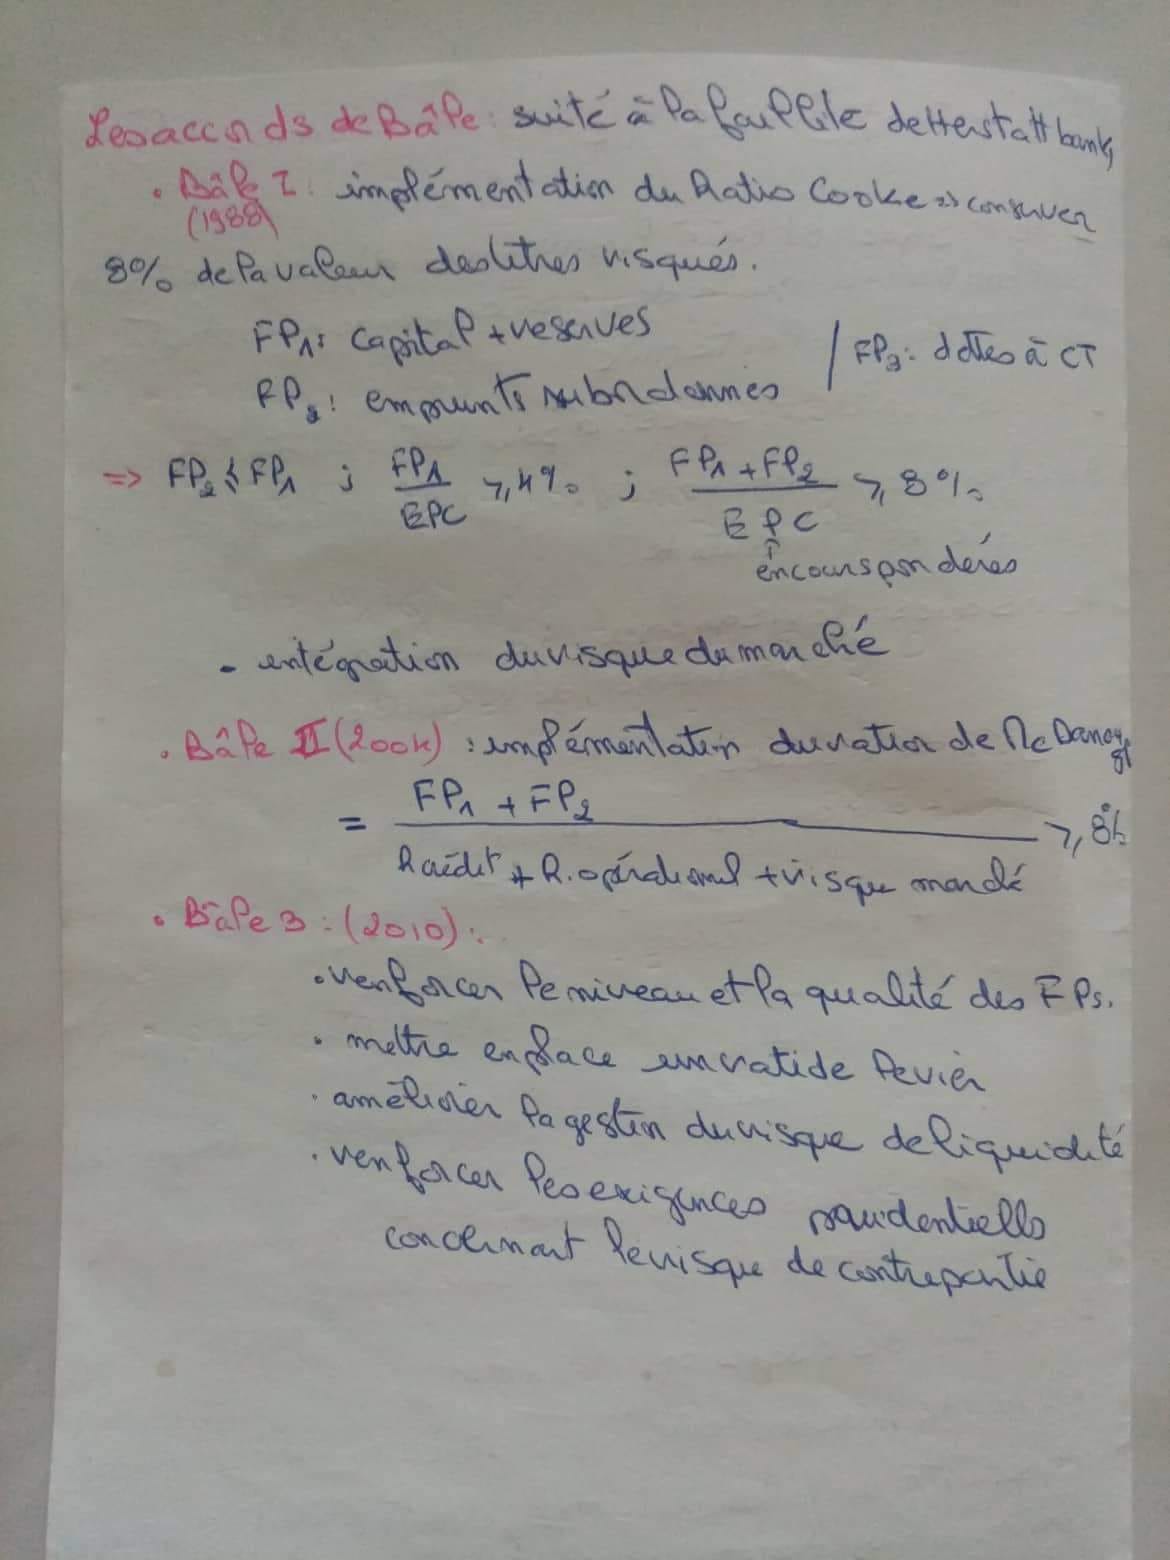 Les accords de Bâle : suité à la faillite de Herstatt bank,
• Bâle I : implémentation du Ratio Cooke => conserver
(1988)
8% de la valeur des titres risqués.
FP1 : capital + reserves
/ FP3 : dettes à CT
FP2 : emprunts subordonnés
=> FP2 ≤ FP1 ; FP1/EPC ≥ 4% ; (FP1 + FP2)/EPC ≥ 8%
↑
encours pondérés
- intégration du risque du marché
• Bâle II (2004) : implémentation du ration de Mc Donough
= (FP1 + FP2)/(R crédit + R. opérationnel + risque marché) ≥ 8%
• Bâle 3 : (2010) :
• renforcer le niveau et la qualité des FPs.
• mettre en place un ratio de levier
• améliorer la gestion du risque de liquidité
• renforcer les exigences prudentielles
concernant le risque de contrepartie